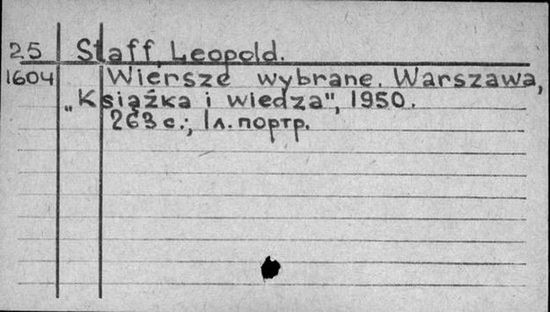 25 Staff, Leopold.
1604 Wiersze wybrane. Warszawa,
„Książka i wiedza", 1950.
263 с.; 1 л. портр.